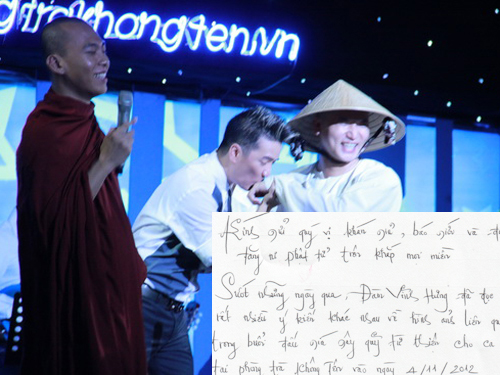 gtrakhongten.vn
Kính gửi quý vị khán giả, báo giới và
tăng ni phật tử trên khắp mọi miền
Suốt những ngày qua, Đàm Vĩnh Hưng đã đọc
rất nhiều ý kiến khác nhau và hình ảnh liên qu
trong buổi đấu giá gây quỹ từ thiện cho ca
tại phòng trà Không Tên vào ngày 4/11/2012